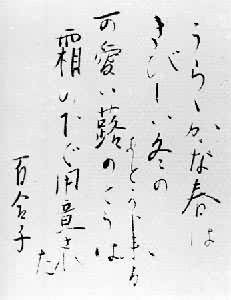 うらゝかな春は
きびしい冬の
あとから来る
可愛い蕗のとうは
霜の下で用意された
百合子